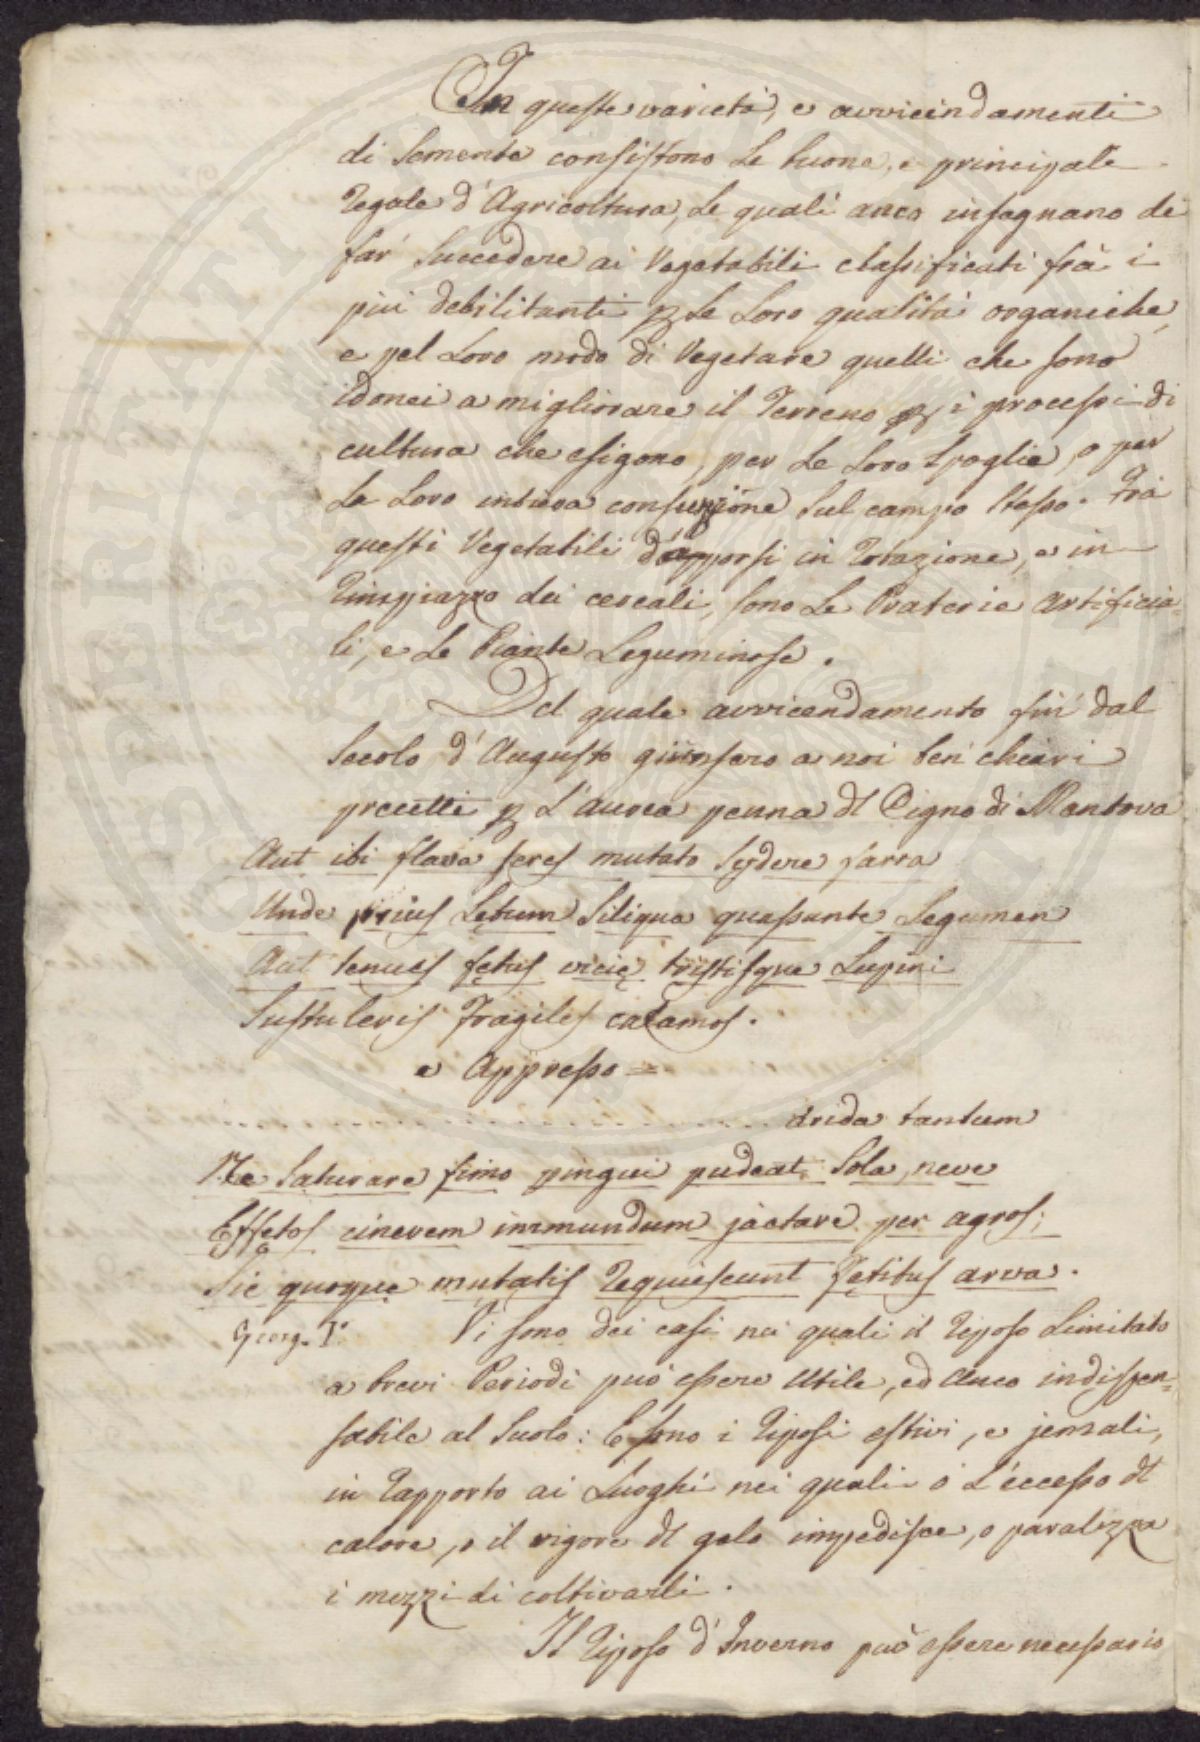 In queste varietà, e avvicindamenti
di Semente consistono le buone, e principale
regole d'Agricoltura, le quali anco insegnano di
far succedere ai Vegetabili classificati frà i
più debilitanti p le loro qualità organiche,
e pel loro modo di Vegetare quelli che sono
idonei a migliorare il Terreno p i processi di
cultura che esigono, per le loro spoglie, o per
la loro intiera consunzione sul campo stesso. Frà
questi Vegetabili d'apporsi in rotazione, e in
rimpiazzo dei cereali, sono le Praterie Artificia=
li, e le Piante Leguminose.
Del quale avvicendamento fin dal
Secolo d'Augusto giunsero a noi ben chiari
precetti p l'aurea penna dl Cigno di Mantova
Aut ibi flava seres mutato sydere farra
Unde prius Lętum Siliqua quassante Legumen
Aut tenues fętus vicię tristisque Lupini
Sustuleris fragiles calamos.
e Appresso =
. . . . . . . . . . . . . . . . arida tantum
Ne Saturare fimo pingui pudeat, Sola, neve
Effętos cinerem immundum jactare per agros;
Sic quoque mutatis requiescunt fętibus arva.
Georg. I.° Vi sono dei casi nei quali il riposo Limitato
a brevi Periodi può essere Utile, ed Anco indispen=
sabile al Suolo: E sono i riposi estivi, e jemali,
in rapporto ai Luoghi nei quali o l'eccesso dl
calore, o il rigore dl gelo impedisce, o paralizza
i mezzi di coltivarli.
Il riposo d'Inverno può essere necessario